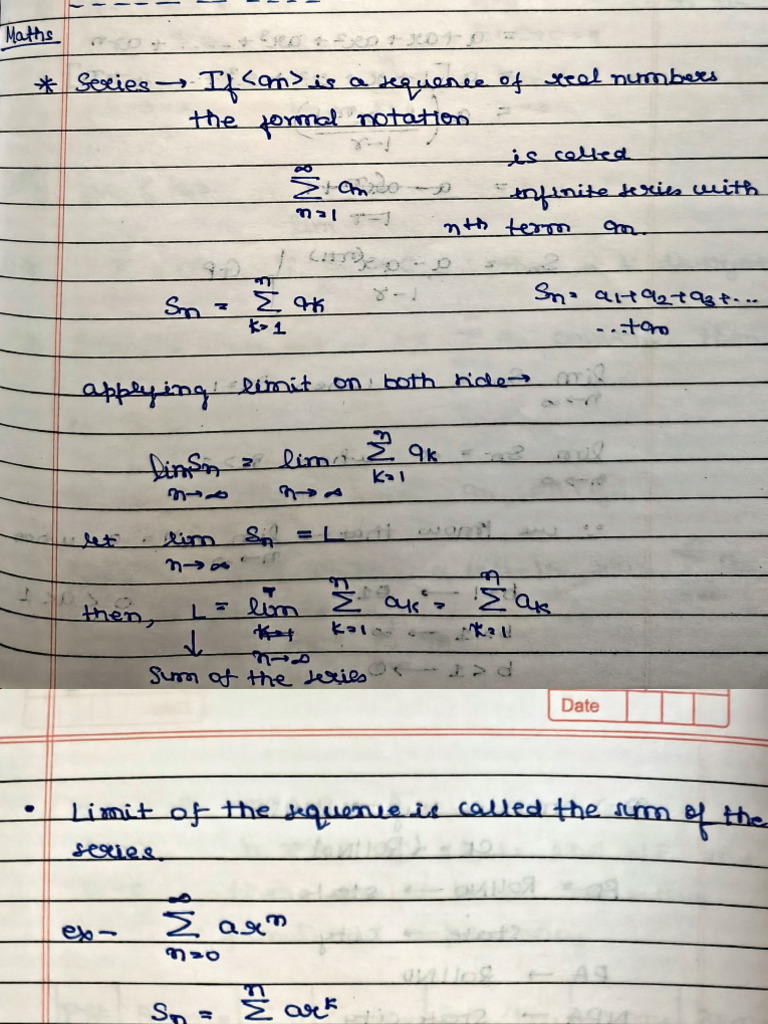 Maths
* Series → If <an> is a sequence of real numbers
the formal notation
∞
∑ an
n=1
is called
infinite series with
nth term an.
Sn = n∑k=1 ak    Sn = a1+a2+a3+...
...+an
applying limit on both side→
lim Sn = lim n∑k=1 ak
n→∞    n→∞
let lim Sn = L
n→∞
then, L = lim n∑k=1 ak = n∑k=1 ak
↓    n→∞
Sum of the series
Date
• Limit of the sequence is called the sum of the
series.
ex- ∞∑n=0 ar^n
Sn = n∑ ar^k